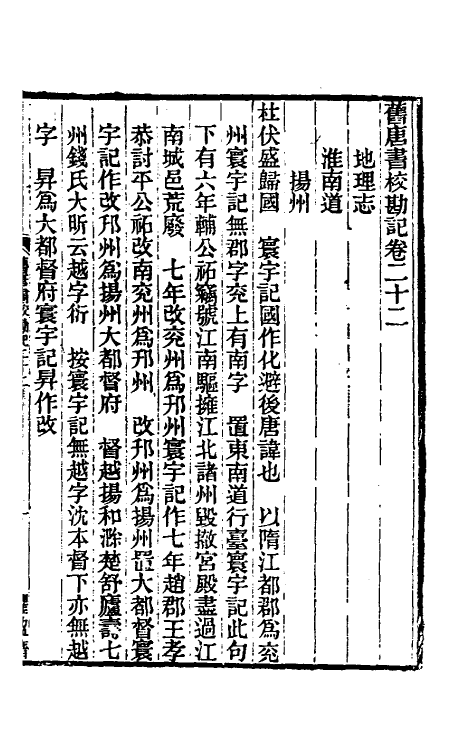 舊唐書校勘記卷二十二
地理志
淮南道
揚州
杜伏盛歸國　寰宇記國作化避後唐諱也　以隋江都郡爲兖
州寰宇記無郡字兖上有南字　置東南道行臺寰宇記此句
下有六年輔公祏竊號江南驅擁江北諸州毀撤宮殿盡過江
南城邑荒廢　七年改兖州爲邗州寰宇記作七年趙郡王孝
恭討平公祏改南兖州爲邗州　改邗州爲揚州置大都督寰
宇記作改邗州爲揚州大都督府　督越揚和滁楚舒廬壽七
州錢氏大昕云越字衍　按寰宇記無越字沈本督下亦無越
字　昇爲大都督府寰宇記昇作改